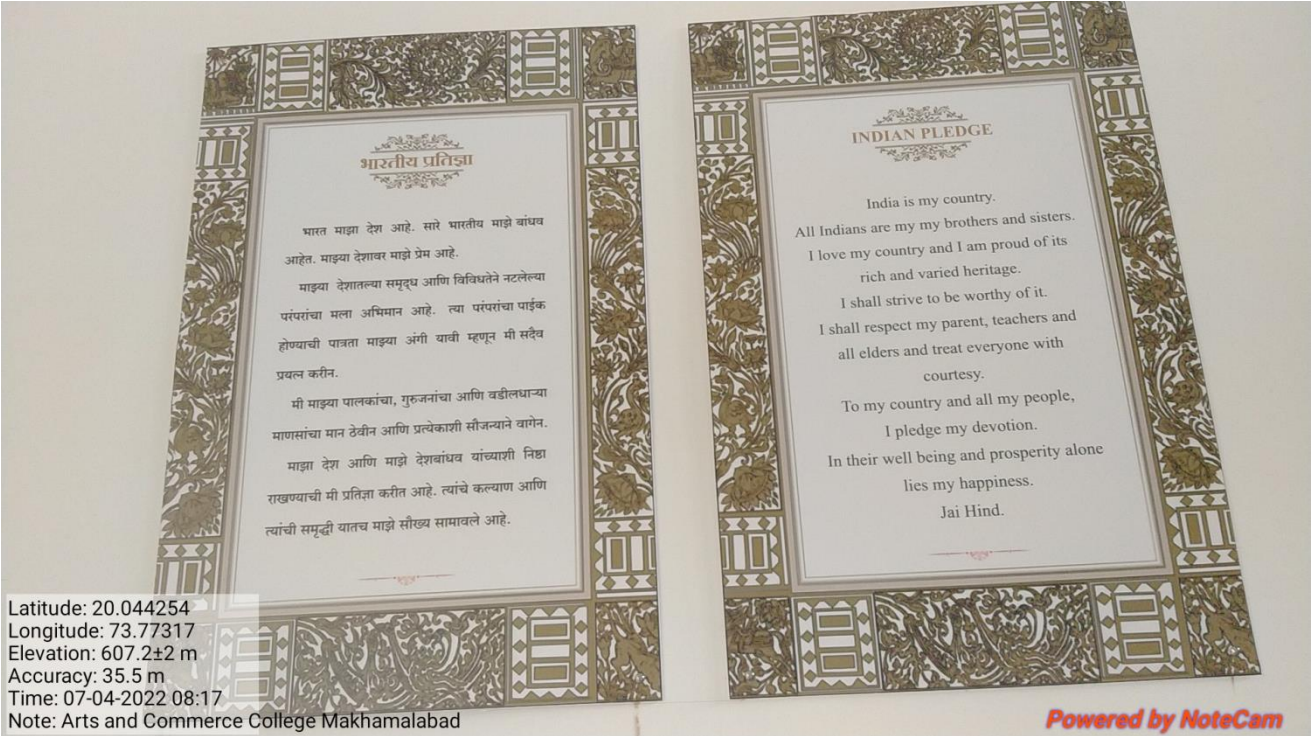 भारतीय प्रतिज्ञा
भारत माझा देश आहे. सारे भारतीय माझे बांधव
आहेत. माझ्या देशावर माझे प्रेम आहे.
माझ्या देशातल्या समृद्ध आणि विविधतेने नटलेल्या
परंपरांचा मला अभिमान आहे. त्या परंपरांचा पाईक
होण्याची पात्रता माझ्या अंगी यावी म्हणून मी सदैव
प्रयत्न करीन.
मी माझ्या पालकांचा, गुरुजनांचा आणि वडीलधाऱ्या
माणसांचा मान ठेवीन आणि प्रत्येकाशी सौजन्याने वागेन.
माझा देश आणि माझे देशबांधव यांच्याशी निष्ठा
राखण्याची मी प्रतिज्ञा करीत आहे. त्यांचे कल्याण आणि
त्यांची समृद्धी यातच माझे सौख्य सामावले आहे.
INDIAN PLEDGE
India is my country.
All Indians are my my brothers and sisters.
I love my country and I am proud of its
rich and varied heritage.
I shall strive to be worthy of it.
I shall respect my parent, teachers and
all elders and treat everyone with
courtesy.
To my country and all my people,
I pledge my devotion.
In their well being and prosperity alone
lies my happiness.
Jai Hind.
Latitude: 20.044254
Longitude: 73.77317
Elevation: 607.2±2 m
Accuracy: 35.5 m
Time: 07-04-2022 08:17
Note: Arts and Commerce College Makhamalabad
Powered by NoteCam